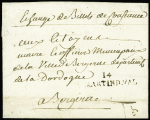 le change de Billets de Confiance
aux Citoyens
maire & officiers Municipaux
de la Ville de Bergerac département
de la Dordogne
14
a Bergerac